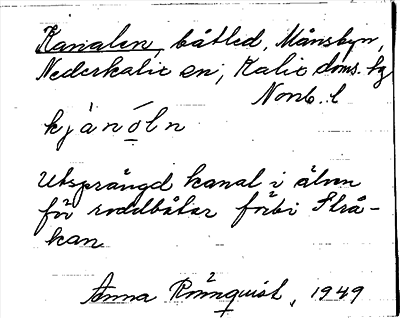 Kanalen, båtled, Månsbyn,
Nederkalix sn; Kalix doms. hg
Norrb. l
kjànóln
Utsprängd kanal i älven
för roddbåtar förbi Strå-
kan
Anna Rönnquist, 1949